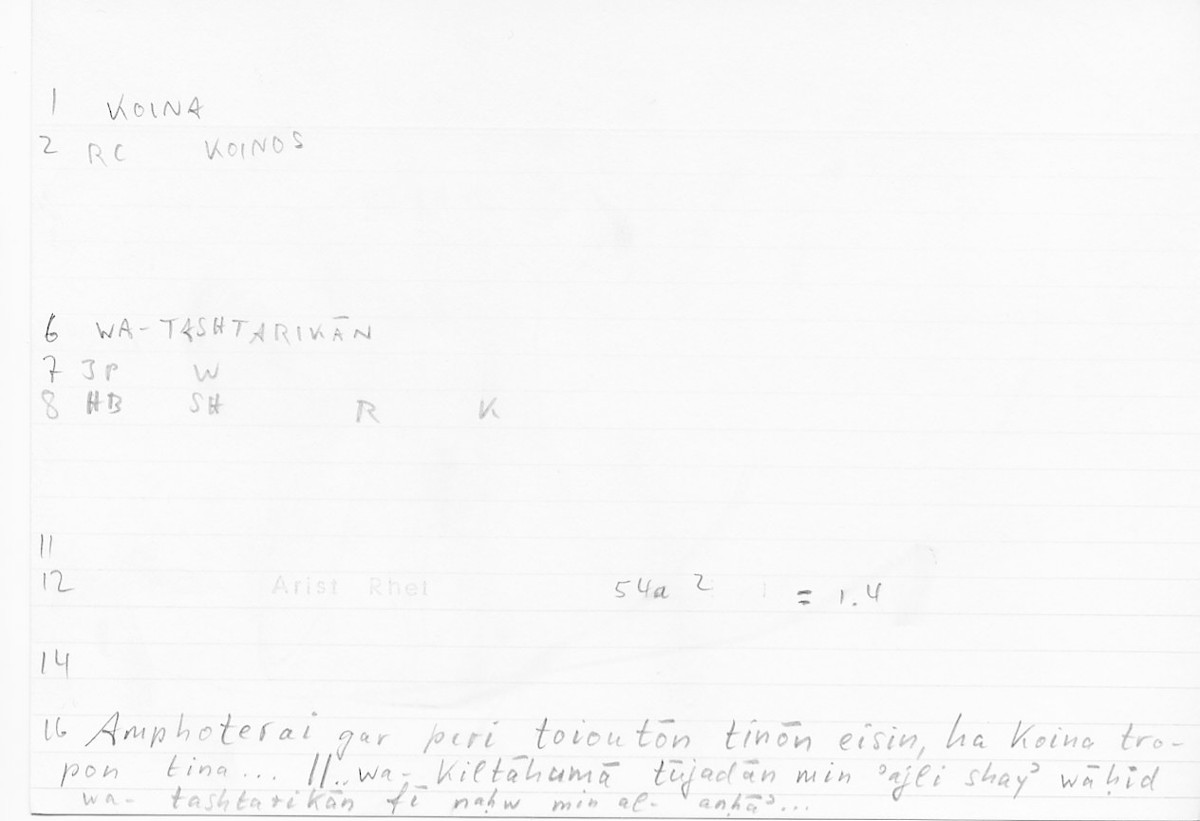 1 KOINA
2 RC KOINOS
6 WA-TASHTARIKĀN
7 3P W
8 HB SH R K
11
12 Arist Rhet 54a 2 1 = 1.4
14
16 Amphoterai gar peri toioutōn tinōn eisin, ha Koina tro-
pon tina... //..wa- Kiltāhumā tūjadān min ʾajli shayʾ wāḥid
wa- tashtarikān fī naḥw min al- anḥāʾ...